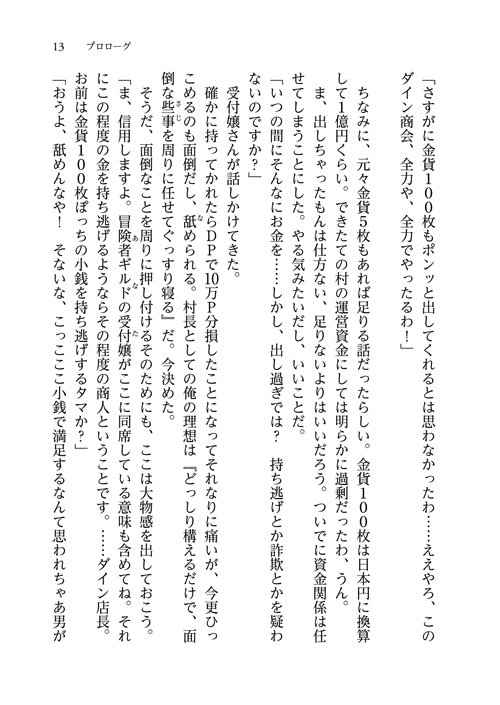 13　プロローグ
「さすがに金貨１００枚もポンッと出してくれるとは思わなかったわ……ええやろ、この
ダイン商会、全力や、全力でやったるわ！」
　ちなみに、元々金貨５枚もあれば足りる話だったらしい。金貨１００枚は日本円に換算
して１億円くらい。できたての村の運営資金にしては明らかに過剰だったわ、うん。
　ま、出しちゃったもんは仕方ない、足りないよりはいいだろう。ついでに資金関係は任
せてしまうことにした。やる気みたいだし、いいことだ。
「いつの間にそんなにお金を……しかし、出し過ぎでは？　持ち逃げとか詐欺とかを疑わ
ないのですか？」
　受付嬢さんが話しかけてきた。
　確かに持ってかれたらＤＰで10万Ｐ分損したことになってそれなりに痛いが、今更ひっ
こめるのも面倒だし、舐められる。村長としての俺の理想は『どっしり構えるだけで、面
倒な些事を周りに任せてぐっすり寝る』だ。今決めた。
　そうだ、面倒なことを周りに押し付けるそのためにも、ここは大物感を出しておこう。
「ま、信用しますよ。冒険者ギルドの受付嬢がここに同席している意味も含めてね。それ
にこの程度の金を持ち逃げるようならその程度の商人ということです。……ダイン店長。
お前は金貨１００枚ぽっちの小銭を持ち逃げするタマか？」
「おうよ、舐めんなや！　そないな、こっここここ小銭で満足するなんて思われちゃあ男が